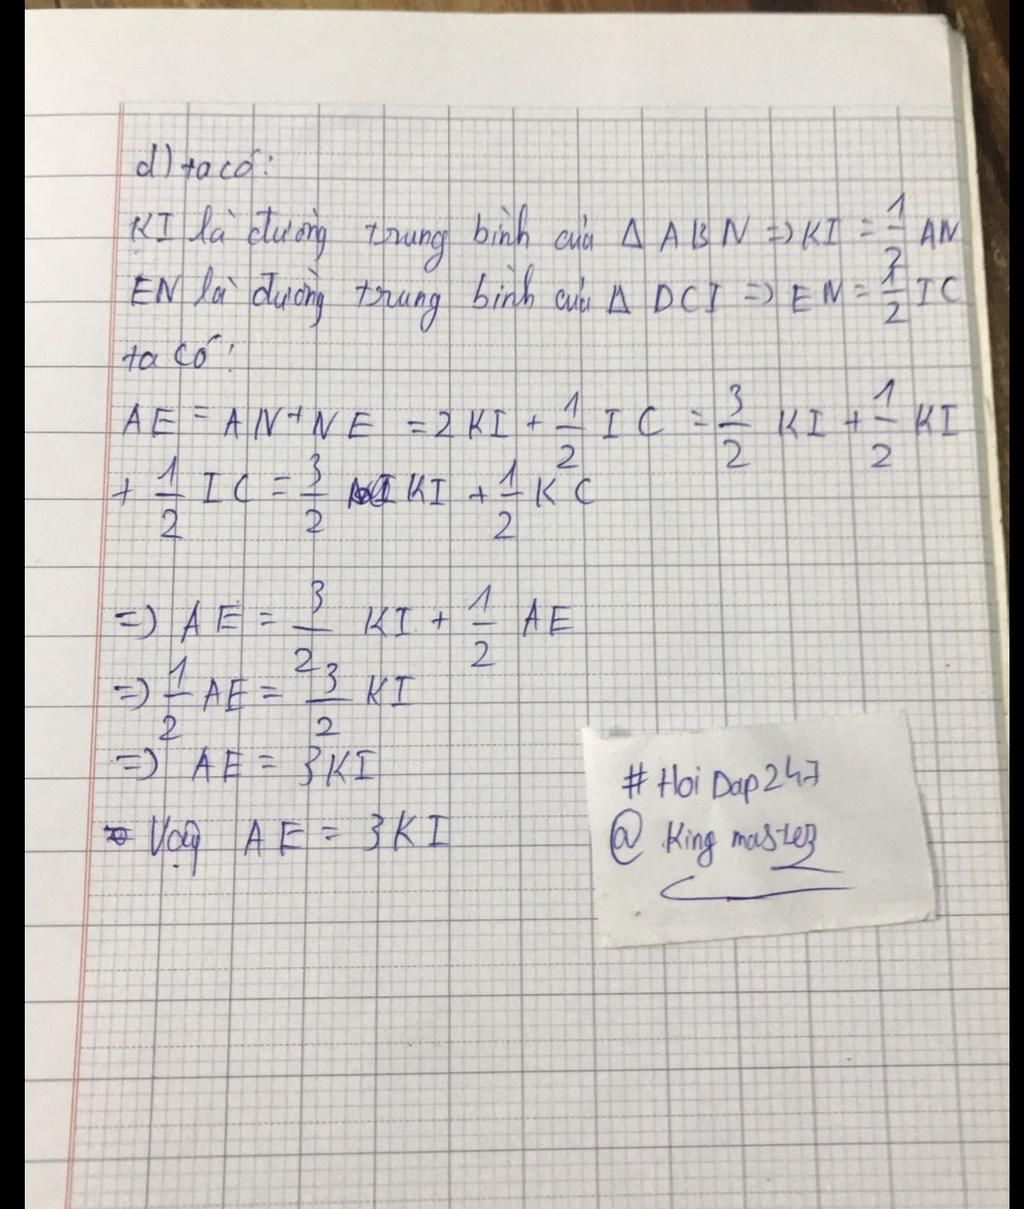 d) ta có:
KI là đường trung bình của Δ ABN => KI = 1/2 AN
EN là đường trung bình của Δ DCI => EN = 1/2 IC
ta có:
AE = AN + NE = 2KI + 1/2 IC = 3/2 KI + 1/2 KI
+ 1/2 IC = 3/2 KI + 1/2 KC
=> AE = 3/2 KI + 1/2 AE
=> 1/2 AE = 3/2 KI
=> AE = 3KI
Vậy AE = 3KI
# Hoi Dap247
@ King master